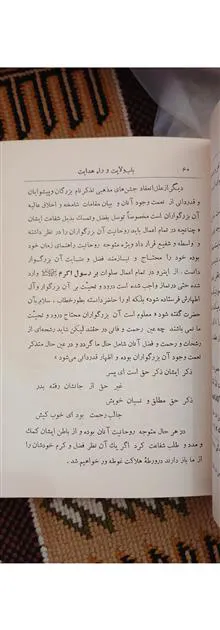 ۶۰ باب ولایت و راه هدایت
دیگر از علل انعقاد جشن‌های مذهبی تذکر نام بزرگان و پیشوایان
و قدردانی از نعمت وجود آنان و بیان مقامات شامخه و اخلاق عالیه
آن بزرگواران است مخصوصاً توسل بفضل و تمسک بذیل شفاعت ایشان
چنانچه در تمام اعمال باید روحانیت آن بزرگواران را در نظر داشته
و واسطه و شفیع قرار داد و متوجه روحانیت راهنمای زمان خود
بوده خود را محتاج و نیازمند فضل و عنایت آن بزرگوار
دانست، از اینرو در تمام اعمال صلوات بر رسول اکرم ﷺ وارد
شده حتی در نماز واجب شده است درود و تحیت بر آن بزرگوار و آل
اطهارش فرستاده شود بلکه او را حاضر دانسته بطور خطاب، سلام بآن
حضرت گفته شود معلوم است آن بزرگواران محتاج درود و تحیت
ما نمی باشند چه عین رحمت و فانی در حقند لیکن شاید رشحه‌ای از
رشحات رحمت و فضل آنان شامل حال ما گردد و در عین حال متذکر
نعمت وجود آن بزرگواران بوده و اظهار قدردانی می‌شود
ذکر ایشان ذکر حق است ای پسر
غیر حق از جانشان رفته بدر
ذکر حق مطلق و نسیان خویش
جالب رحمت بود ای خوب کیش
در هر حال متوجه روحانیت آنان بوده و از باطن ایشان کمک
و مدد و طلب شفاعت کرد اگر یک آن نظر فضل و کرم خودشان را
از ما باز دارند در ورطهٔ هلاکت غوطه ور خواهیم شد.